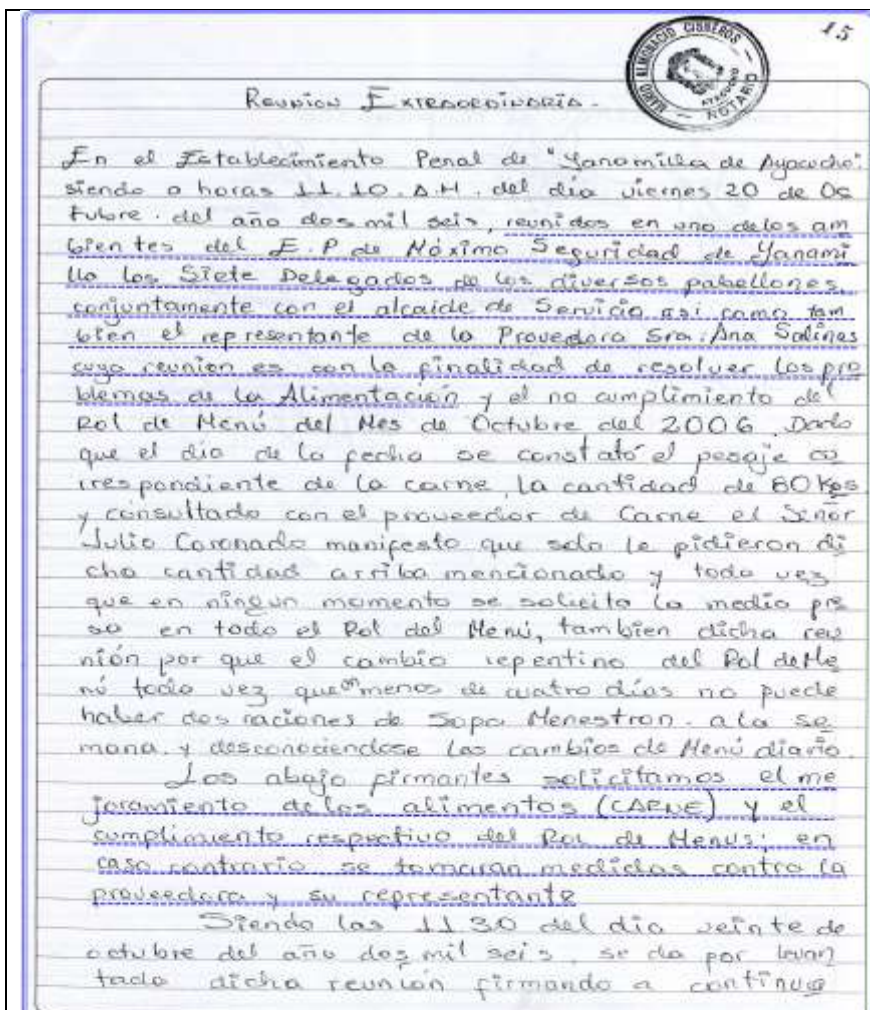 15
MARIO ALMONACID CISNEROS
AYACUCHO
NOTARIO
Reunion Extraordinaria.
En el Establecimiento Penal de "Yanamilla de Ayacucho".
siendo a horas 11.10. A.M. del día viernes 20 de Oc
tubre. del año dos mil seis, reunidos en uno delos am
bientes del E.P de Máximo Seguridad de Yanami
lla los Siete Delegados de los diversos pabellones,
conjuntamente con el alcaide de Servicio asi como tam
bien el representante de la Proveedora Sra: Ana Salinas
cuya reunion es con la finalidad de resolver los pro
blemas de la Alimentación y el no cumplimiento del
Rol de Menú del Mes de Octubre del 2006. Dado
que el dia de la fecha se constató el pesaje co
rrespondiente de la carne, la cantidad de 80 Kgs
y consultado con el proveedor de Carne el Señor
Julio Coronado manifesto que solo le pidieron di
cha cantidad arriba mencionado y toda vez
que en ningun momento se solicita la media
en todo el Rol del Menú, tambien dicha reu
nión por que el cambio repentino del Rol de Me
nú toda vez que en menos de cuatro días no puede
haber dos raciones de Sopa Menestron. a la se
mana. y desconociendose los cambios de Menú diario.
Los abajo firmantes solicitamos el me
joramiento delos alimentos (CARNE) y el
cumplimiento respectivo del Rol de Menus; en
caso contrario se tomaran medidas contra la
proveedora y su representante
Siendo las 11 30 del dia veinte de
octubre del año dos mil seis, se da por levan
tada dicha reunión firmando a continua